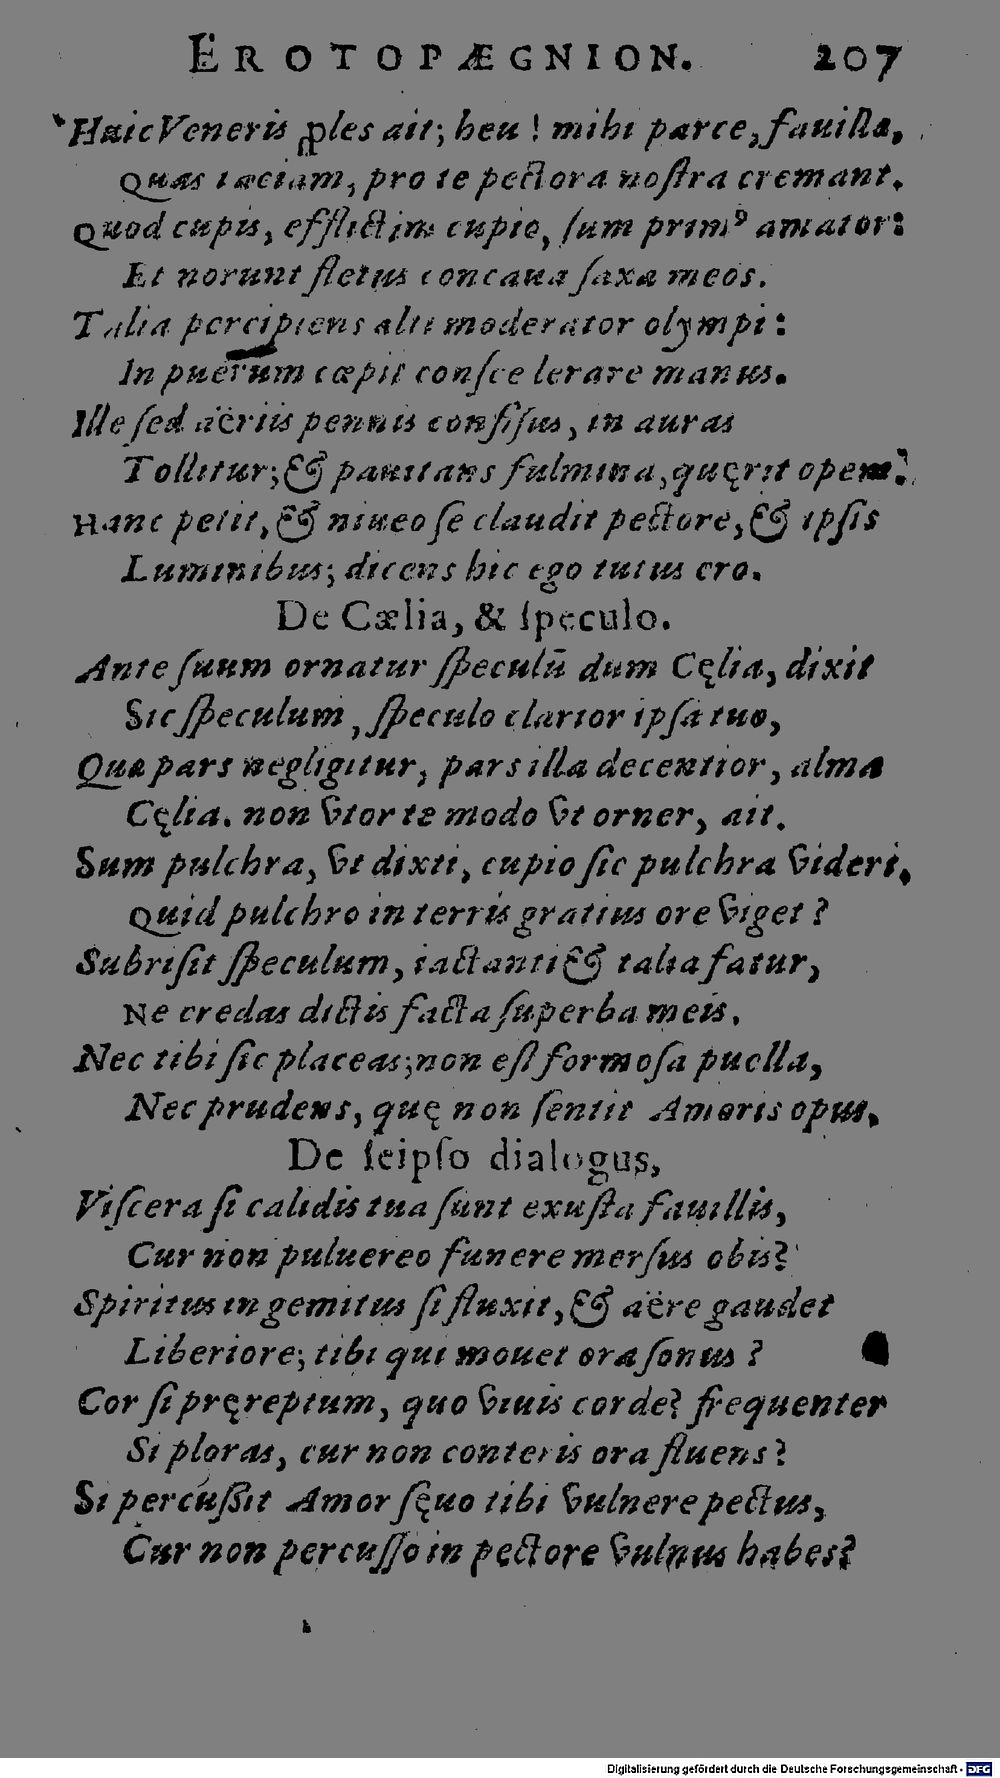 EROTOPÆGNION. 207
Huic Veneris ꝓles ait; heu! mihi parce, fauilla,
Quas iaciam, pro te pectora noſtra cremant.
Quod cupis, efflictim cupio, ſum primꝰ amator:
Et norunt fletus concaua ſaxa meos.
Talia percipiens alti moderator olympi:
In puerum cœpit conſce lerare manus.
Ille ſed aëriis pennis confiſus, in auras
Tollitur; & pauitans fulmina, quęrit opem:
Hanc petit, & niueo ſe claudit pectore, & ipſis
Luminibus; dicens hic ego tutus ero.
De Cælia, & ſpeculo.
Ante ſuum ornatur ſpeculū dum Cęlia, dixit
Sic ſpeculum, ſpeculo clarior ipſa tuo,
Quæ pars negligitur, pars illa decentior, alma
Cęlia. non vtor te modo vt orner, ait.
Sum pulchra, vt dixti, cupio ſic pulchra videri.
Quid pulchro in terris gratius ore viget?
Subriſit ſpeculum, iactanti & talia fatur,
Ne credas dictis facta ſuperba meis.
Nec tibi ſic placeas; non eſt formoſa puella,
Nec prudens, quę non ſentit Amoris opus.
De ſeipſo dialogus,
Viſcera ſi calidis tua ſunt exuſta fauillis,
Cur non puluereo funere merſus obis?
Spiritus in gemitus ſi fluxit, & aëre gaudet
Liberiore; tibi qui mouet ora ſonus?
Cor ſi pręreptum, quo viuis corde? frequenter
Si ploras, cur non conteris ora fluens?
Si percuſſit Amor ſęuo tibi vulnere pectus,
Cur non percuſſo in pectore vulnus habes?
Digitalisierung gefördert durch die Deutsche Forschungsgemeinschaft - DFG